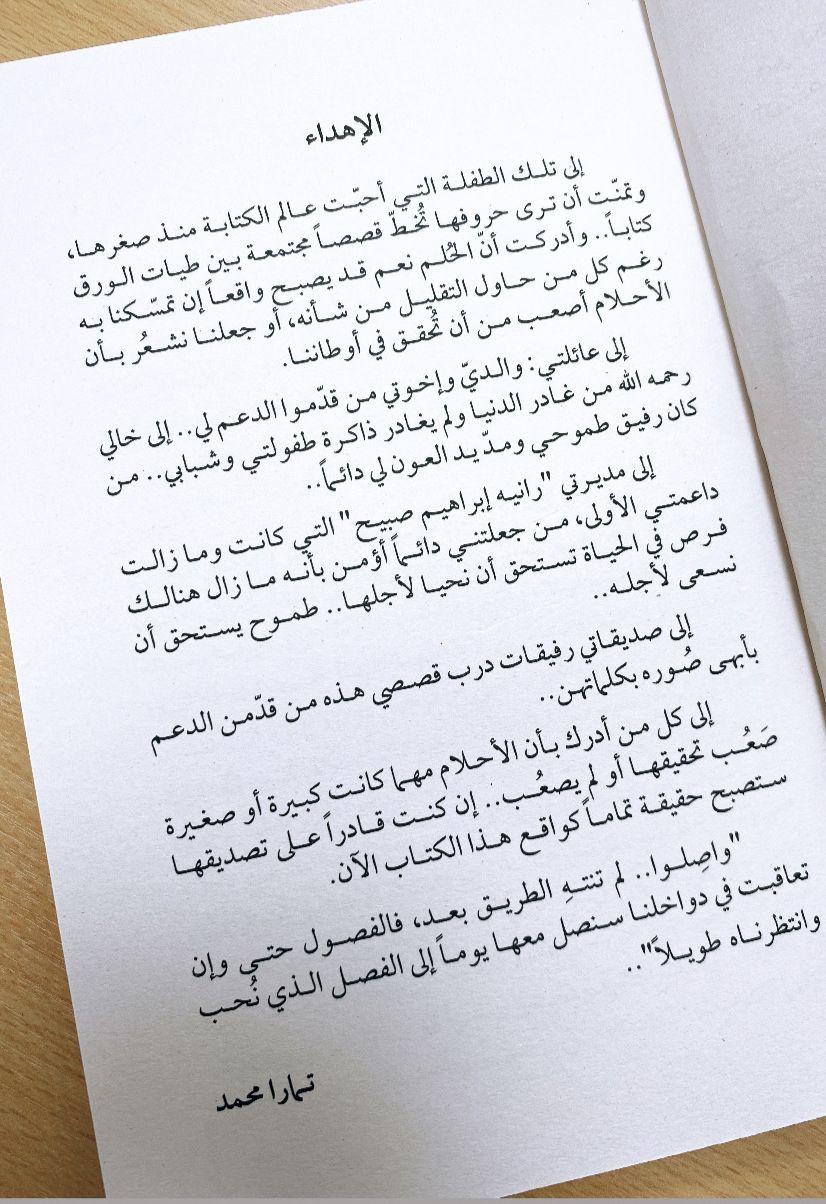 الإهداء
إلى تلك الطفلة التي أحبّت عالم الكتابة منذ صغرها،
وتمنّت أن ترى حروفها تُخطّ قصصاً مجتمعة بين طيات الورق
كتاباً.. وأدركت أنّ الحُلم نعم قد يصبح واقعاً إن تمسّكنا به
رغم كل من حاول التقليل من شأنه، أو جعلنا نشعُر بأن
الأحلام أصعب من أن تُحقق في أوطاننا.
إلى عائلتي: والديّ وإخوتي من قدّموا الدعم لي.. إلى خالي
رحمه الله من غادر الدنيا ولم يغادر ذاكرة طفولتي وشبابي.. من
كان رفيق طموحي ومدّ يد العون لي دائماً..
إلى مديرتي "رانيه إبراهيم صبيح" التي كانت وما زالت
داعمتي الأولى، من جعلتني دائماً أؤمن بأنه ما زال هنالك
فرص في الحياة تستحق أن نحيا لأجلها.. طموح يستحق أن
نسعى لأجله..
إلى صديقاتي رفيقات درب قصصي هذه من قدّمن الدعم
بأبهى صُوره بكلماتهن..
إلى كل من أدرك بأن الأحلام مهما كانت كبيرة أو صغيرة
صَعُب تحقيقها أو لم يصعُب.. إن كنت قادراً على تصديقها
ستصبح حقيقة تماماً كواقع هذا الكتاب الآن.
"واصِلوا.. لم تنتهِ الطريق بعد، فالفصول حتى وإن
تعاقبت في دواخلنا سنصل معها يوماً إلى الفصل الذي نُحب
وانتظرناه طويلاً"..
تمارا محمد